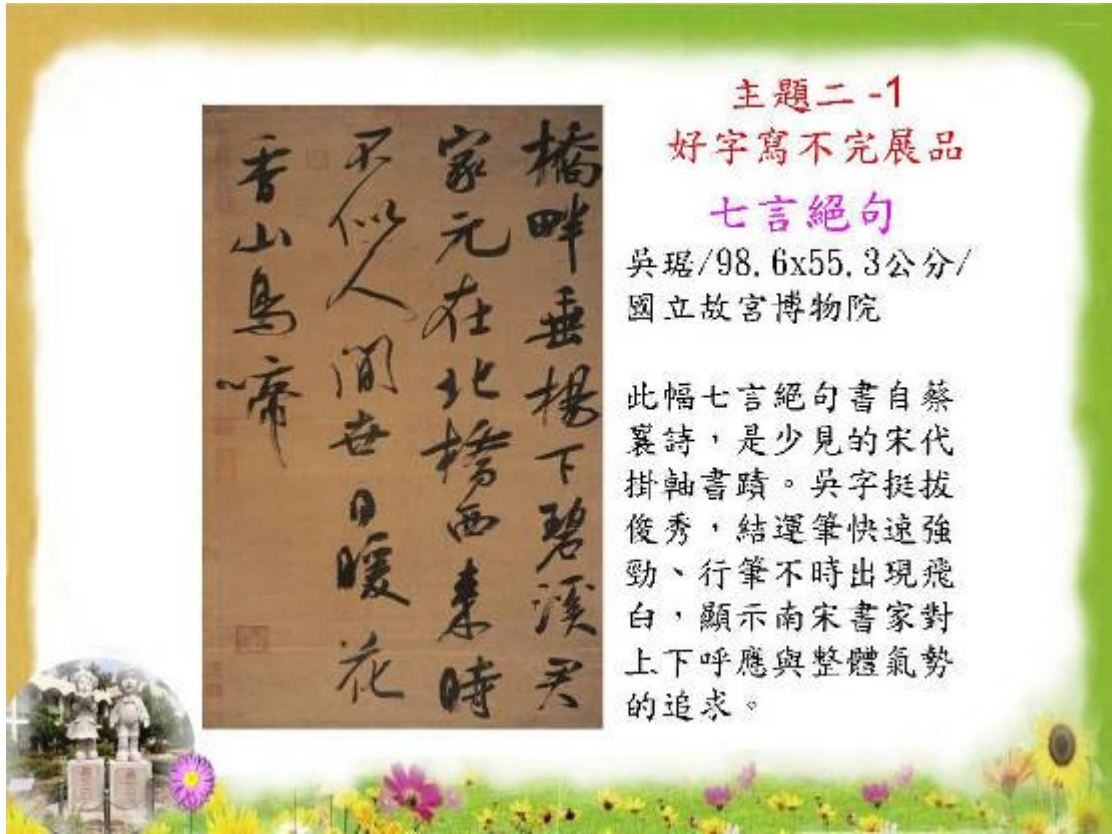 主題二 -1
好字寫不完展品
七言絕句
吳琚/98.6x55.3公分/
國立故宮博物院
此幅七言絕句書自蔡
襄詩，是少見的宋代
掛軸書蹟。吳字挺拔
俊秀，結運筆快速強
勁、行筆不時出現飛
白，顯示南宋書家對
上下呼應與整體氣勢
的追求。
橋畔垂楊下碧溪君
家元在北橋西來時
不似人間世日暖花
香山鳥啼